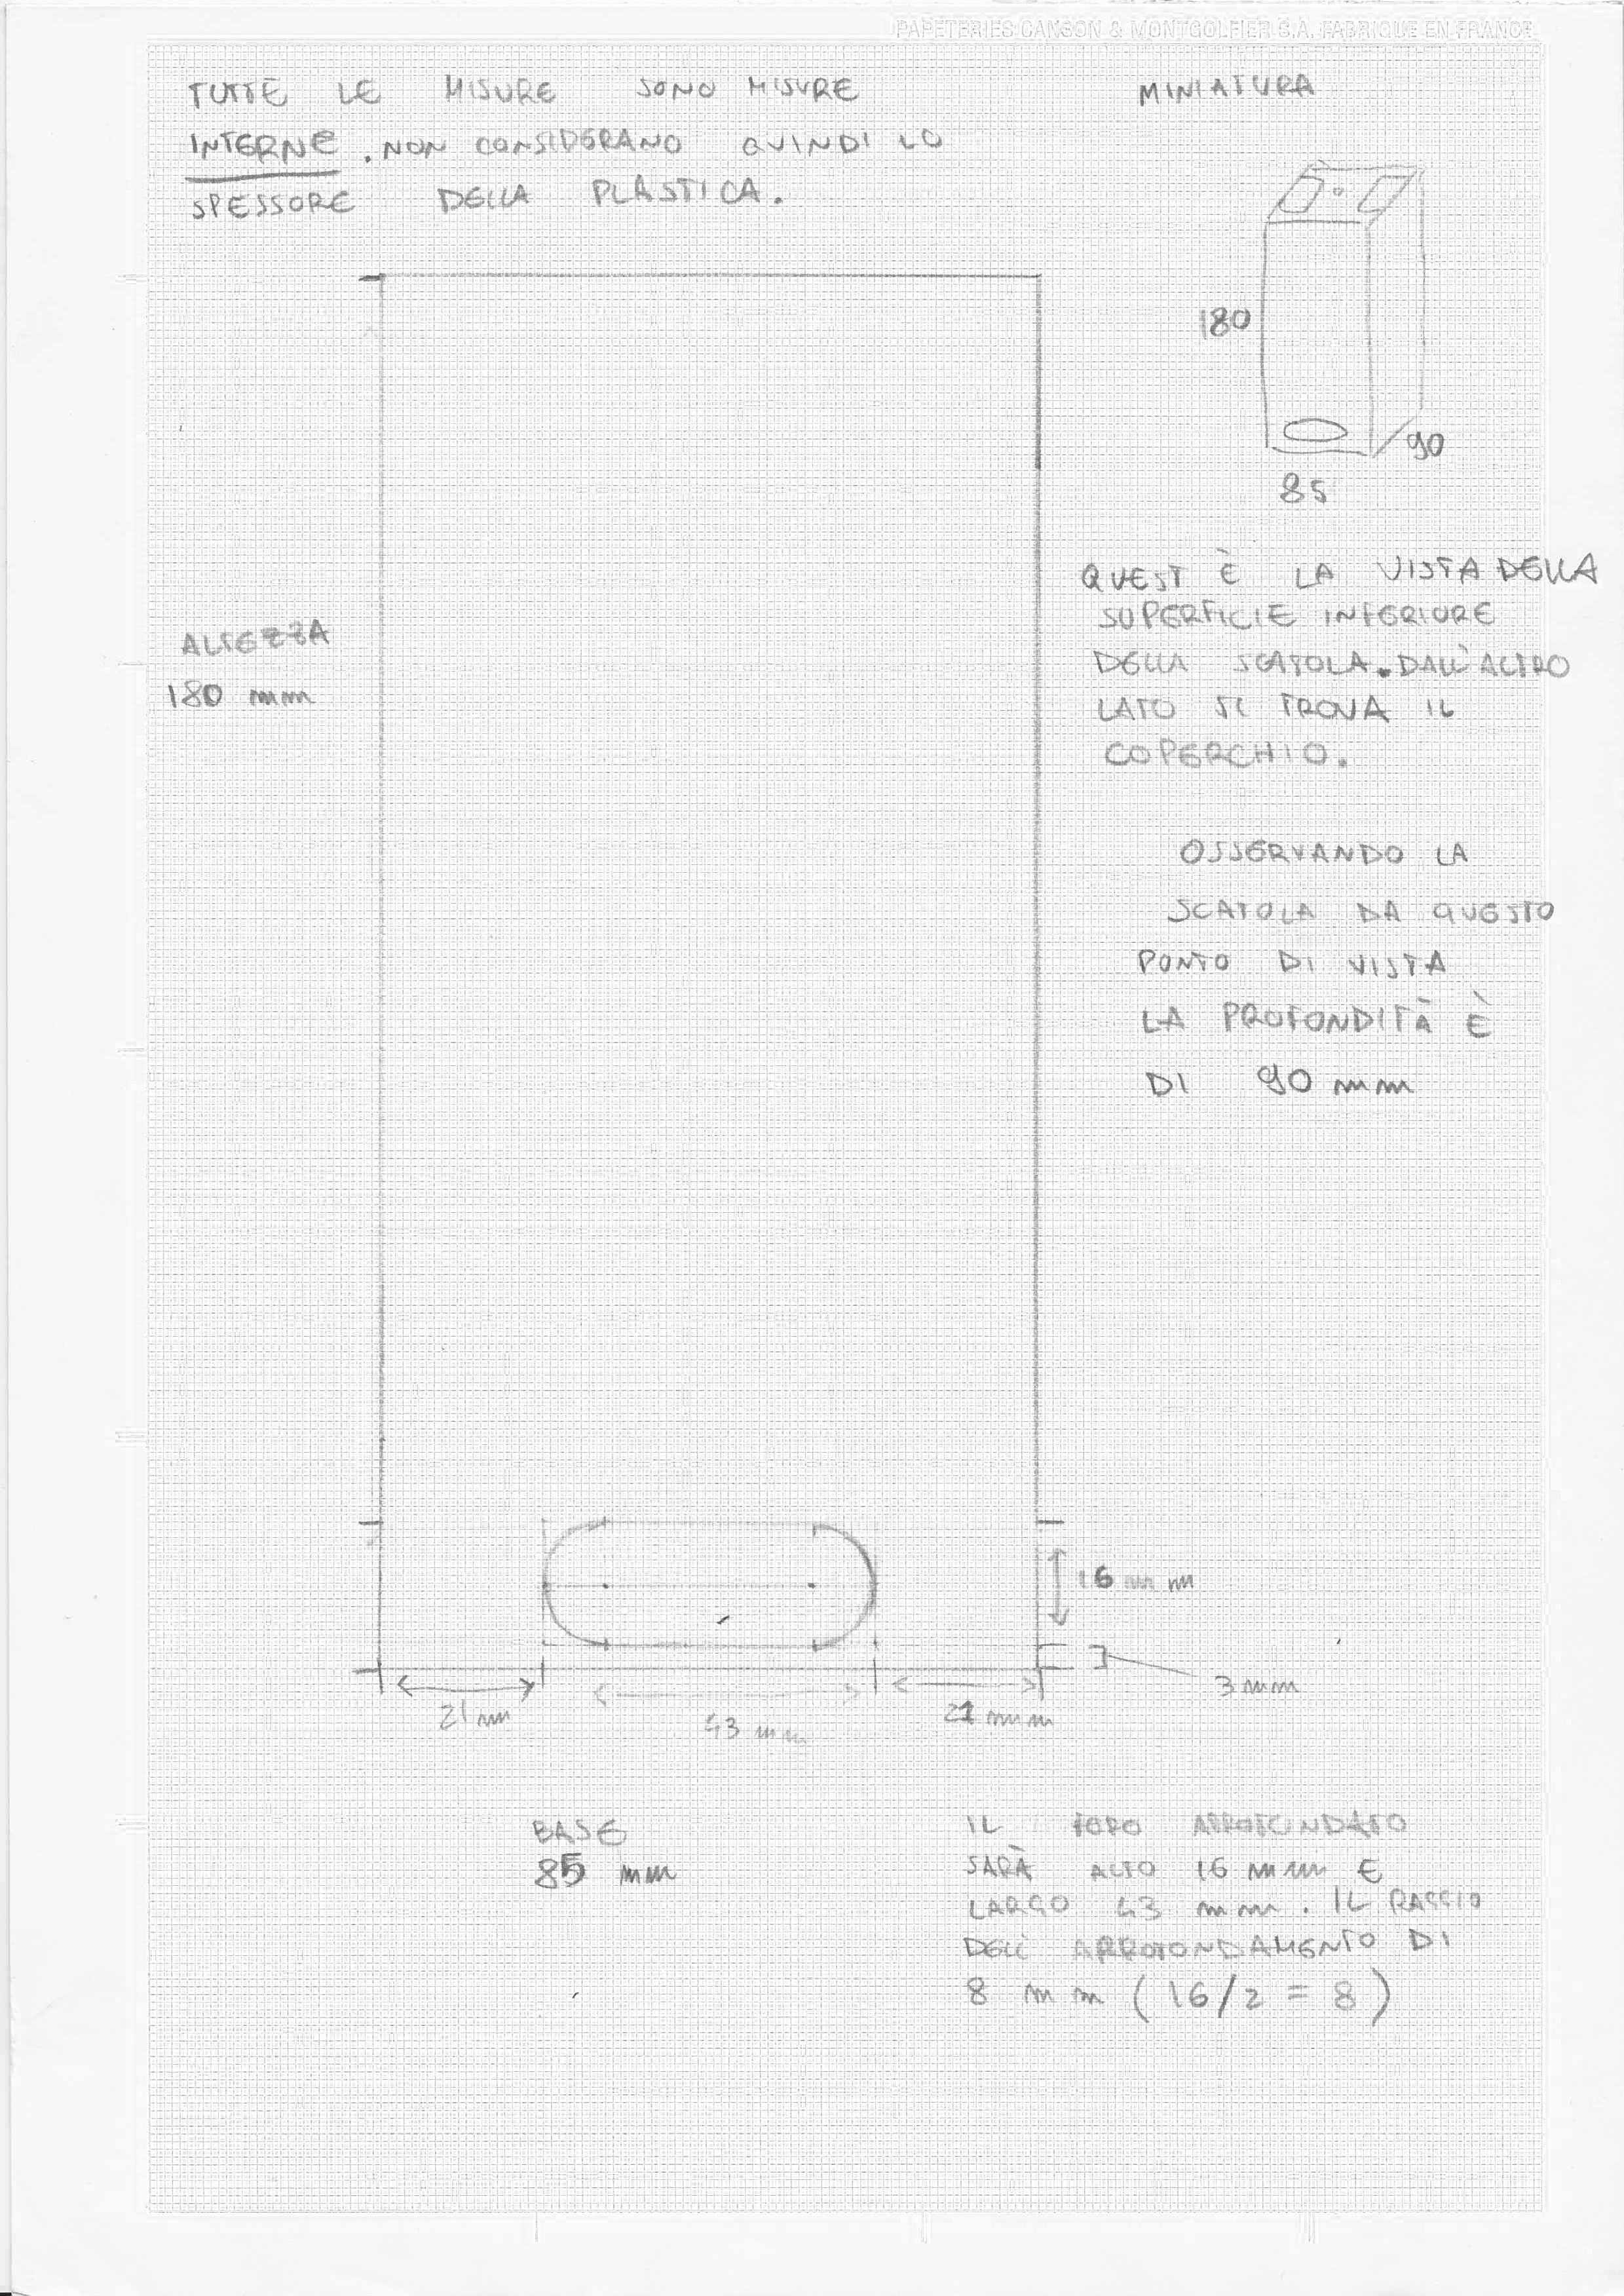 PAPETERIES CANSON & MONTGOLFIER S.A. FABRIQUE EN FRANCE
TUTTE LE MISURE SONO MISURE
INTERNE. NON CONSIDERANO QUINDI LO
SPESSORE DELLA PLASTICA.
MINIATURA
180
90
85
QUEST È LA VISTA DELLA
SUPERFICIE INFERIORE
DELLA SCATOLA. DALL'ALTRO
LATO SI TROVA IL
COPERCHIO.
ALTEZZA
180 mm
OSSERVANDO LA
SCATOLA DA QUESTO
PUNTO DI VISTA
LA PROFONDITÀ È
DI 90 mm
16 mm
3 mm
21 mm
43 mm
21 mm
BASE
85 mm
IL FORO ARROTONDATO
SARÀ ALTO 16 mm E
LARGO 43 mm. IL RAGGIO
DELL'ARROTONDAMENTO DI
8 mm (16/2 = 8)